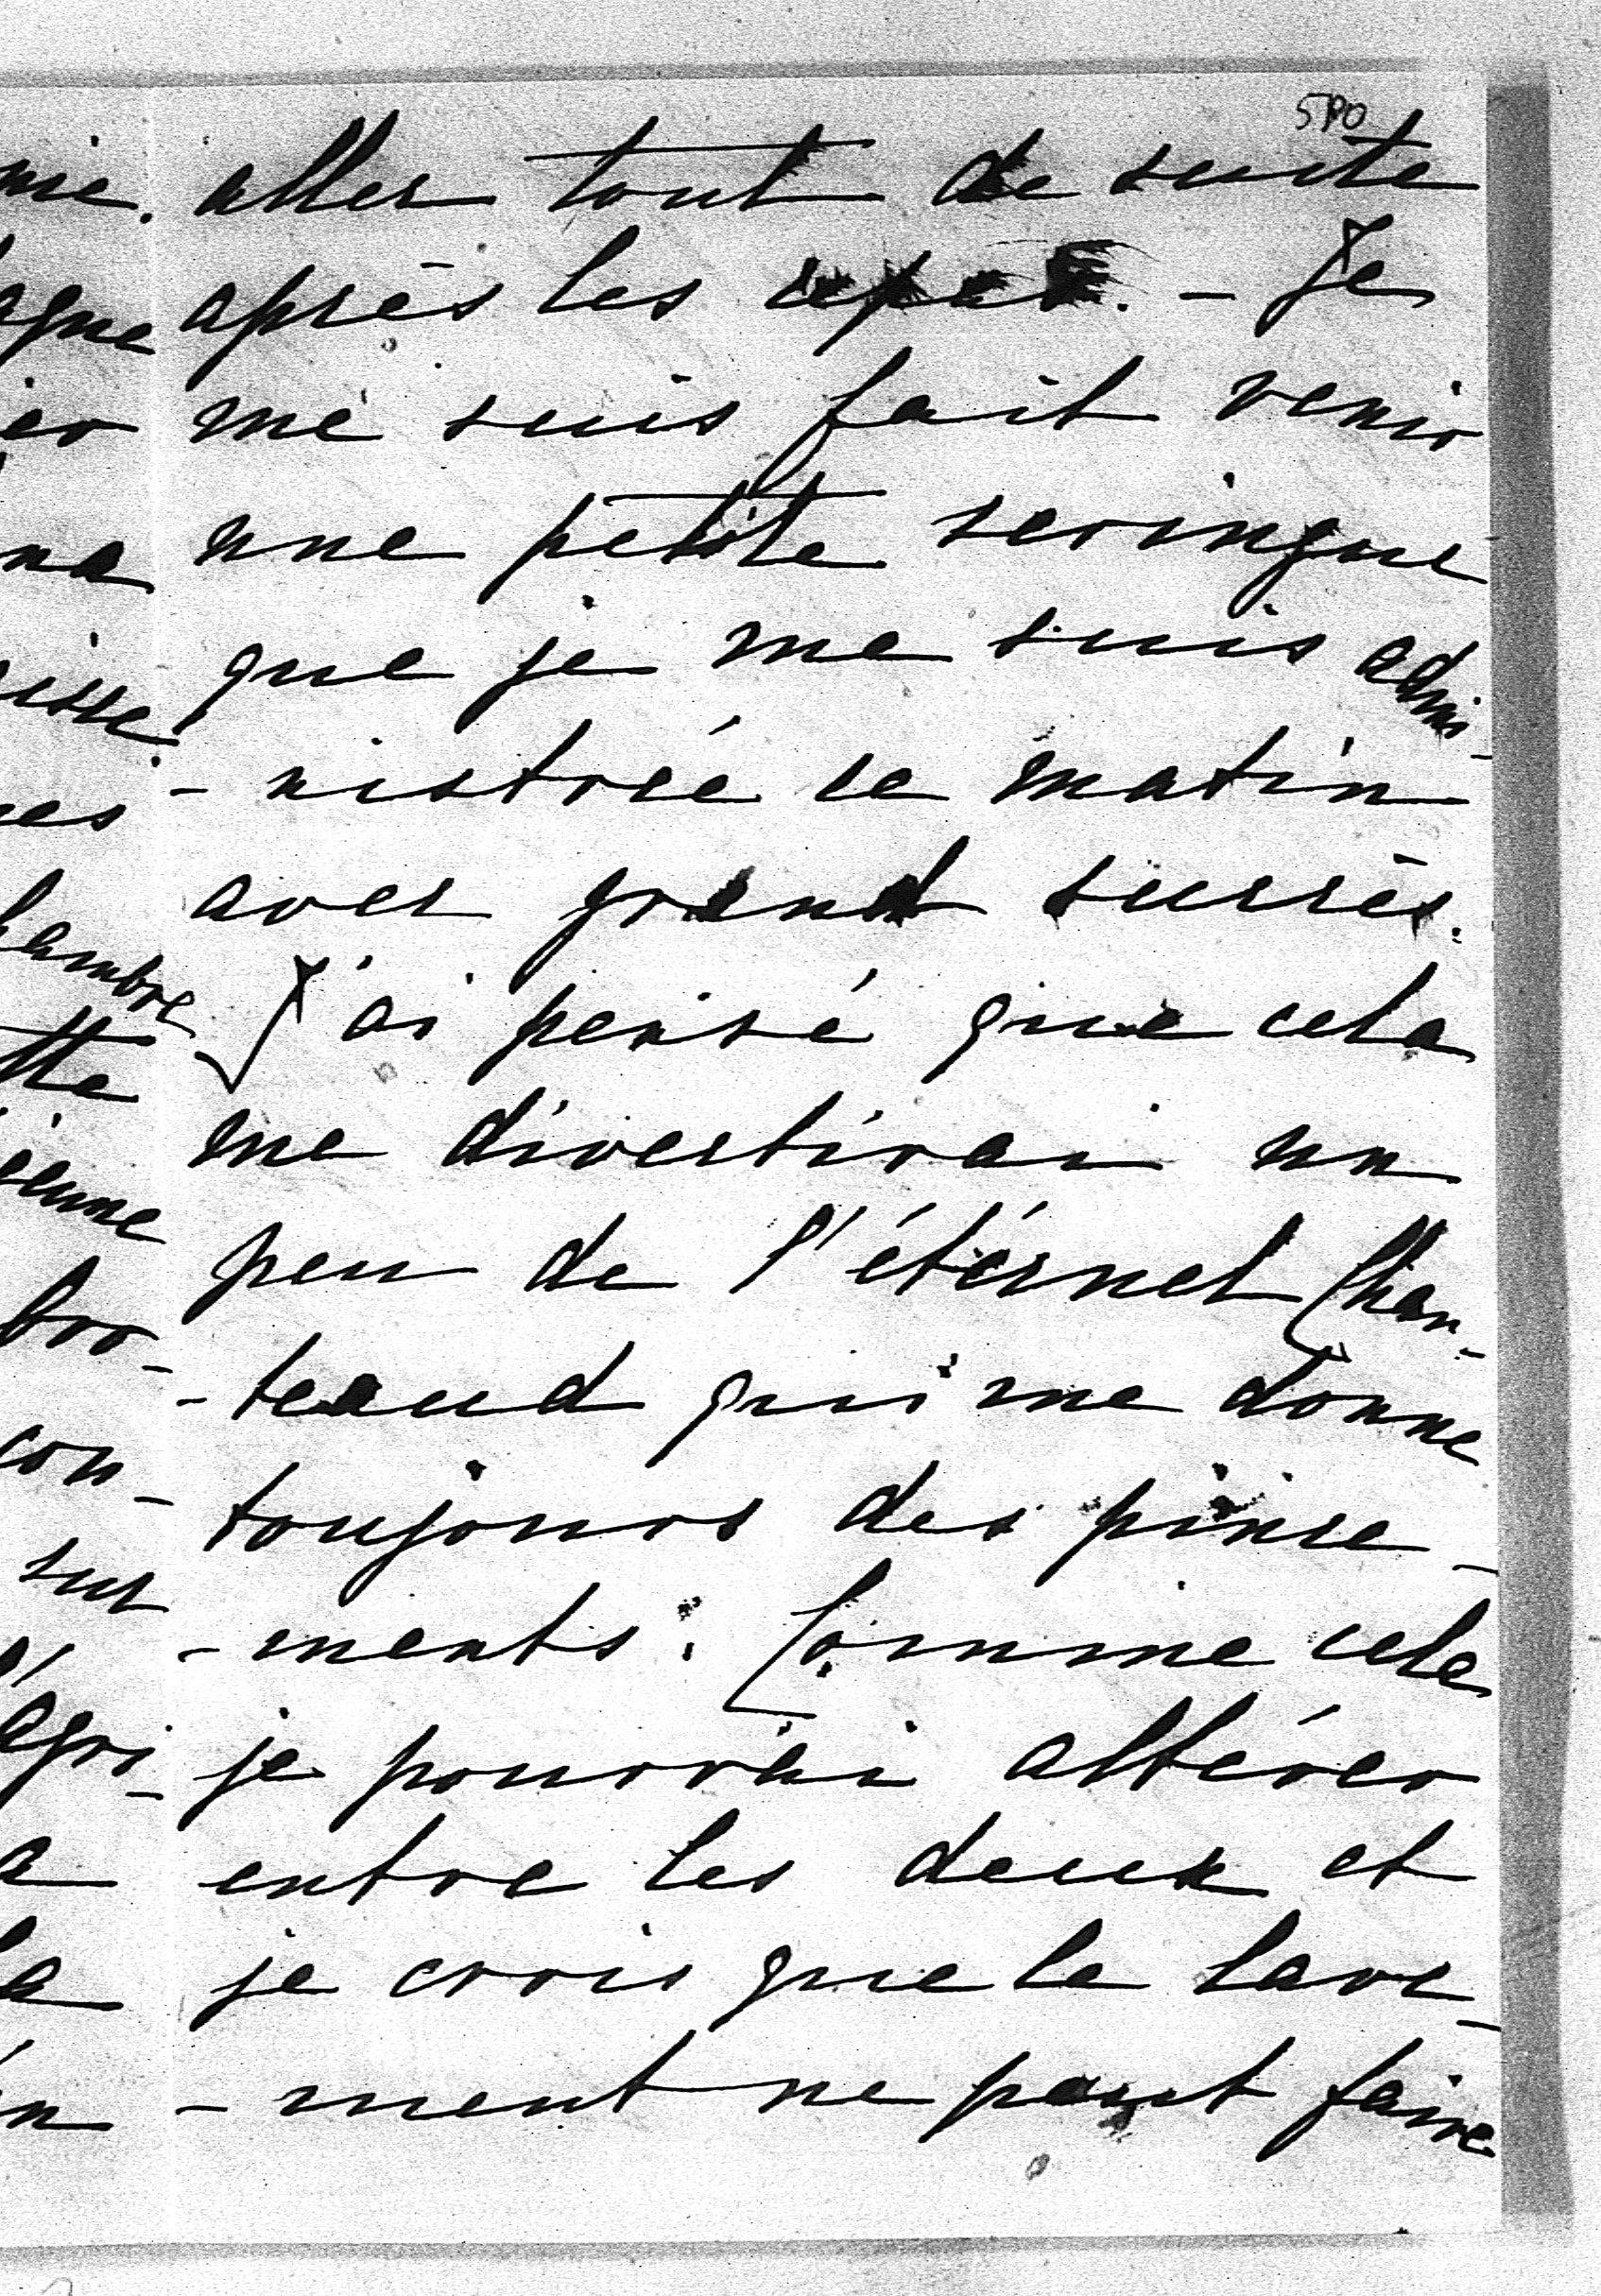 580
aller tout de suite
après les repas. - Je
me suis fait venir
une petite seringue
que je me suis admi-
- nistrée ce matin
avec grand succès.
J'ai pensé que cela
me divertirai un
peu de l'étérnel Chan-
- teaud qui me donne
toujours des pince-
- ments. Comme cela
je pourrai altérer
entre les deux et
je crois que le lave-
- ment ne peut faire
nie.
agne
ier
na
isse.
es
hambre
tte
ienne
bro-
con-
sur
agri-
a
la
n